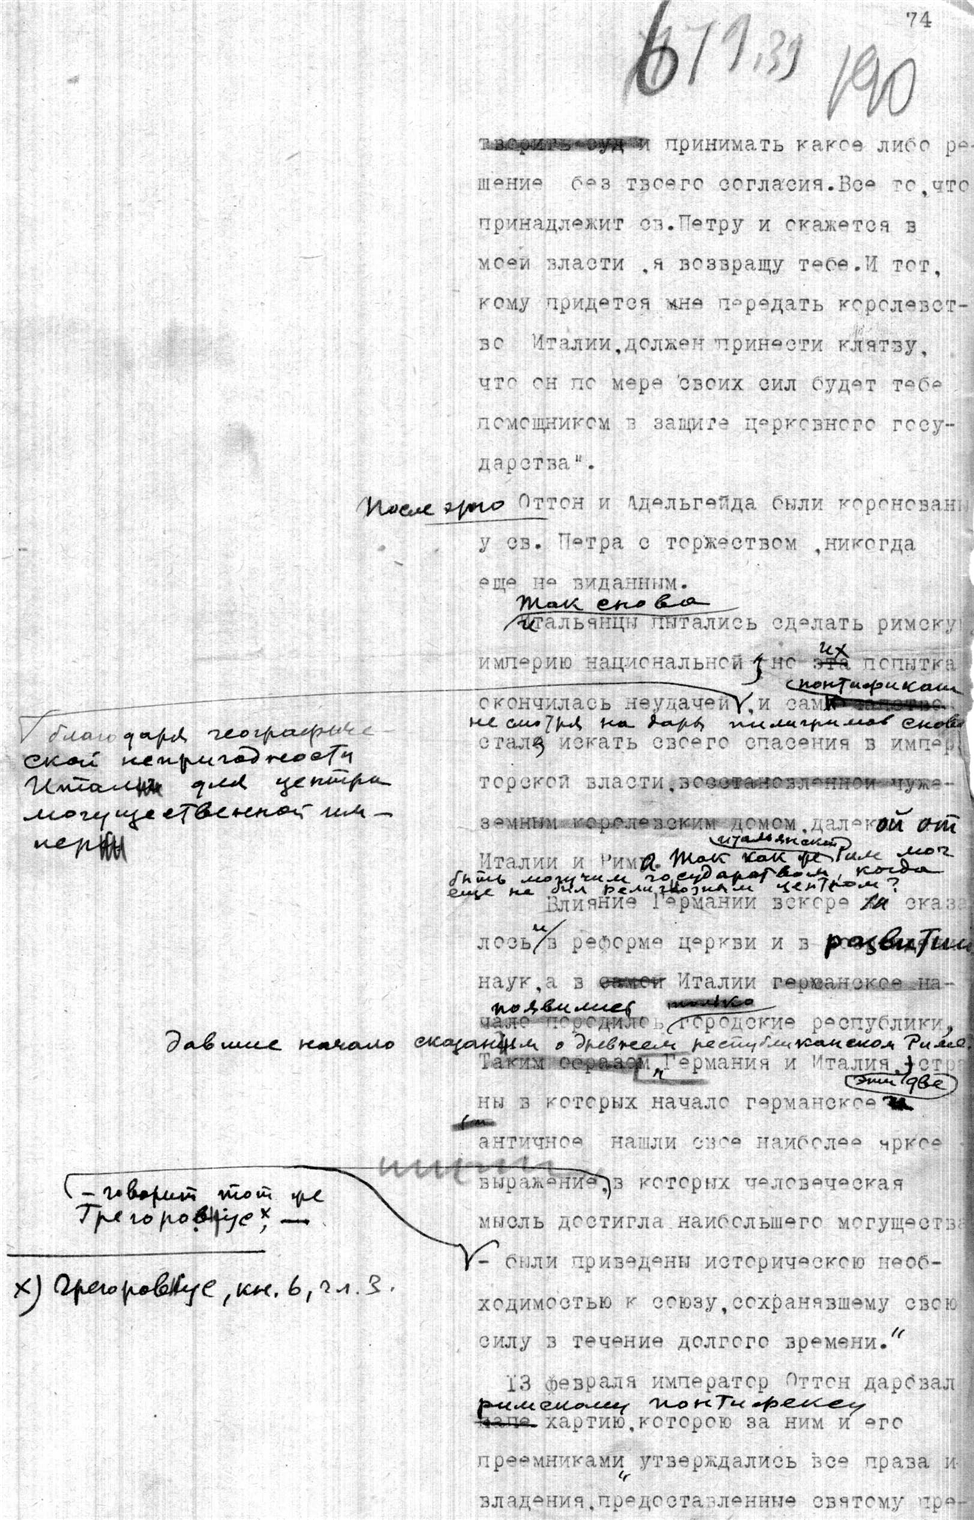 74
6
79.39
190
творить суд и принимать какое либо ре-
шение без твоего согласия.Все то,что
принадлежит св.Петру и окажется в
моей власти ,я возвращу тебе.И тот,
кому придется мне передать королевст-
во Италии,должен принести клятву,
что он по мере своих сил будет тебе
помощником в защите церковного госу-
дарства".
После этого Оттон и Адельгейда были коронованы
у св. Петра с торжеством ,никогда
еще не виданным.
Так снова
итальянцы пытались сделать римску
их
империю национальной, но эта попытка
понтификат
окончилась неудачей, и сам
несмотря на дары пилигримов снова
стал искать своего спасения в импер
торской власти,восстановленной чуже-
земным королевским домом,далекой от
итальянский
Италии и Рима. Так как же Рим мог
быть могучим государством, когда
еще не был религиозным центром?
благодаря географиче-
ской непригодности
Италии для центра
могущественной им-
перии
Влияние Германии вскоре сказа
лось и в реформе церкви и в развитии
наук,а в самой Италии германское на-
появились только
чало породило городские республики,
давшие начало сказаниям о древнем республиканском Риме.
Таким образом Германия и Италия, стра
эти две
ны в которых начало германское и
античное нашли свое наиболее яркое
выражение,в которых человеческая
— говорит тот же
Грегоровиус x, —
мысль достигла наибольшего могущества
- были приведены историческою необ-
x) Грегоровиус, кн. 6, гл. 3.
ходимостью к союзу,сохранявшему свою
силу в течение долгого времени."
13 февраля император Оттон даровал
римскому понтифексу
папе хартию,которою за ним и его
преемниками утверждались все права и
владения,"предоставленные святому пре-